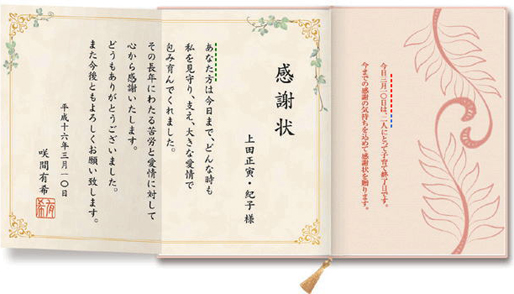 今日三月一〇日は、二人にとって子育て終了日です。
今までの感謝の気持ちを込めて感謝状を贈ります。
感謝状
上田正寅・紀子 様
あなた方は今日まで、どんな時も
私を見守り、支え、大きな愛情で
包み育んでくれました。
その長年にわたる苦労と愛情に対して
心から感謝いたします。
どうもありがとうございました。
また今後ともよろしくお願い致します。
平成十六年三月一〇日
咲間有希
有希